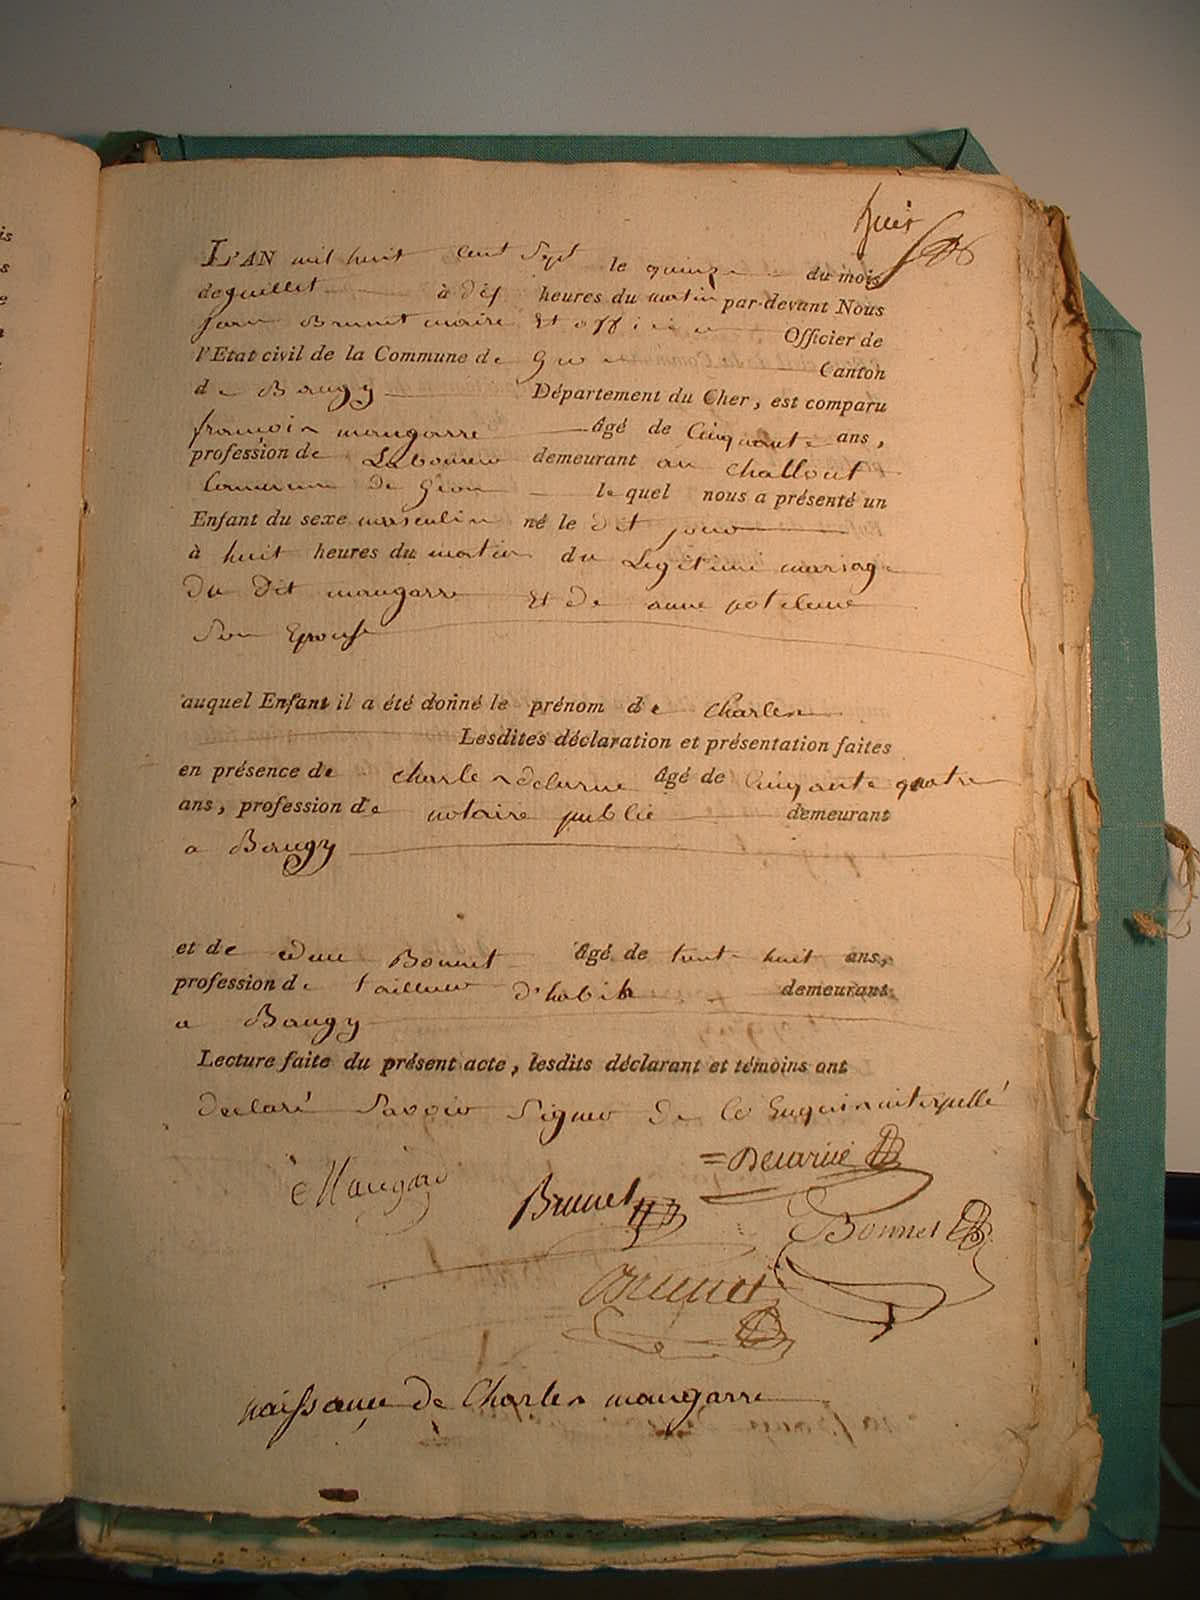 huit
L'AN mil huit cent Sept le quinze du mois
de juillet à dix heures du matin par-devant Nous
Jean Brunet maire Et officier Officier de
l'Etat civil de la Commune de Gron Canton
de Baugy Département du Cher, est comparu
françois maugarre Agé de Cinquante ans,
profession de Laboureur demeurant au challout
Commune de Gron lequel nous a présenté un
Enfant du sexe masculin né le dit jour
à huit heures du matin du Legitime mariage
du dit maugarre Et de anne
Son Epouse
auquel Enfant il a été donné le prénom de charles
Lesdites déclaration et présentation faites
en présence de charles delarue Agé de Cinquante quatre
ans, profession de notaire public demeurant
a Baugy
et de Bonnet Agé de trente huit ans,
profession de tailleur d'habits demeurant
a Baugy
Lecture faite du présent acte, lesdits déclarant et témoins ont
declaré Savoir Signer de Ce Enquis interpellé
Delarue
Brunet
Bonnet
Brunet
naissance de Charles maugarre